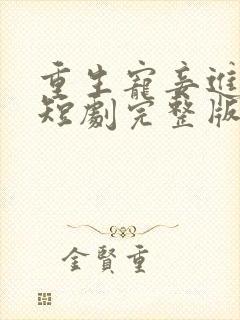 重生寵妾進
短劇完整版
金賢重